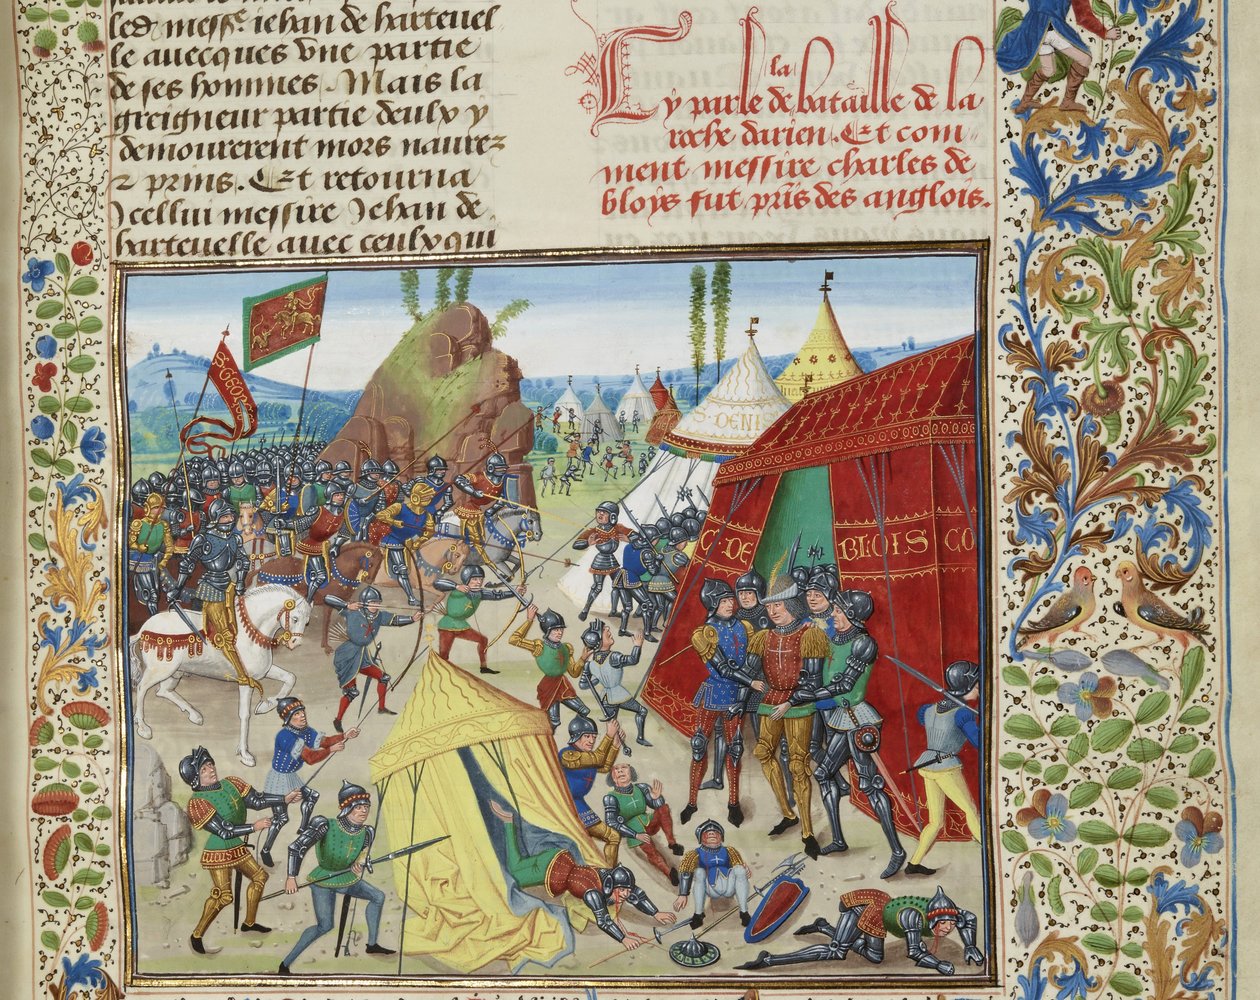 led. messe. iehan de harteuel
le auecques vne partie
de ses hommes. Mais la
greigneur partie deulx y
demourerent mors naurez
z prins. Et retourna
Icellui messire Jehan de
harteuelle auec ceulx qui
Cy parle de la bataille de la
roche darien. Et com
ment messire charles de
bloys fut prīs des anglois.
S GEORG
S. DENIS
C. DE BLOIS CO